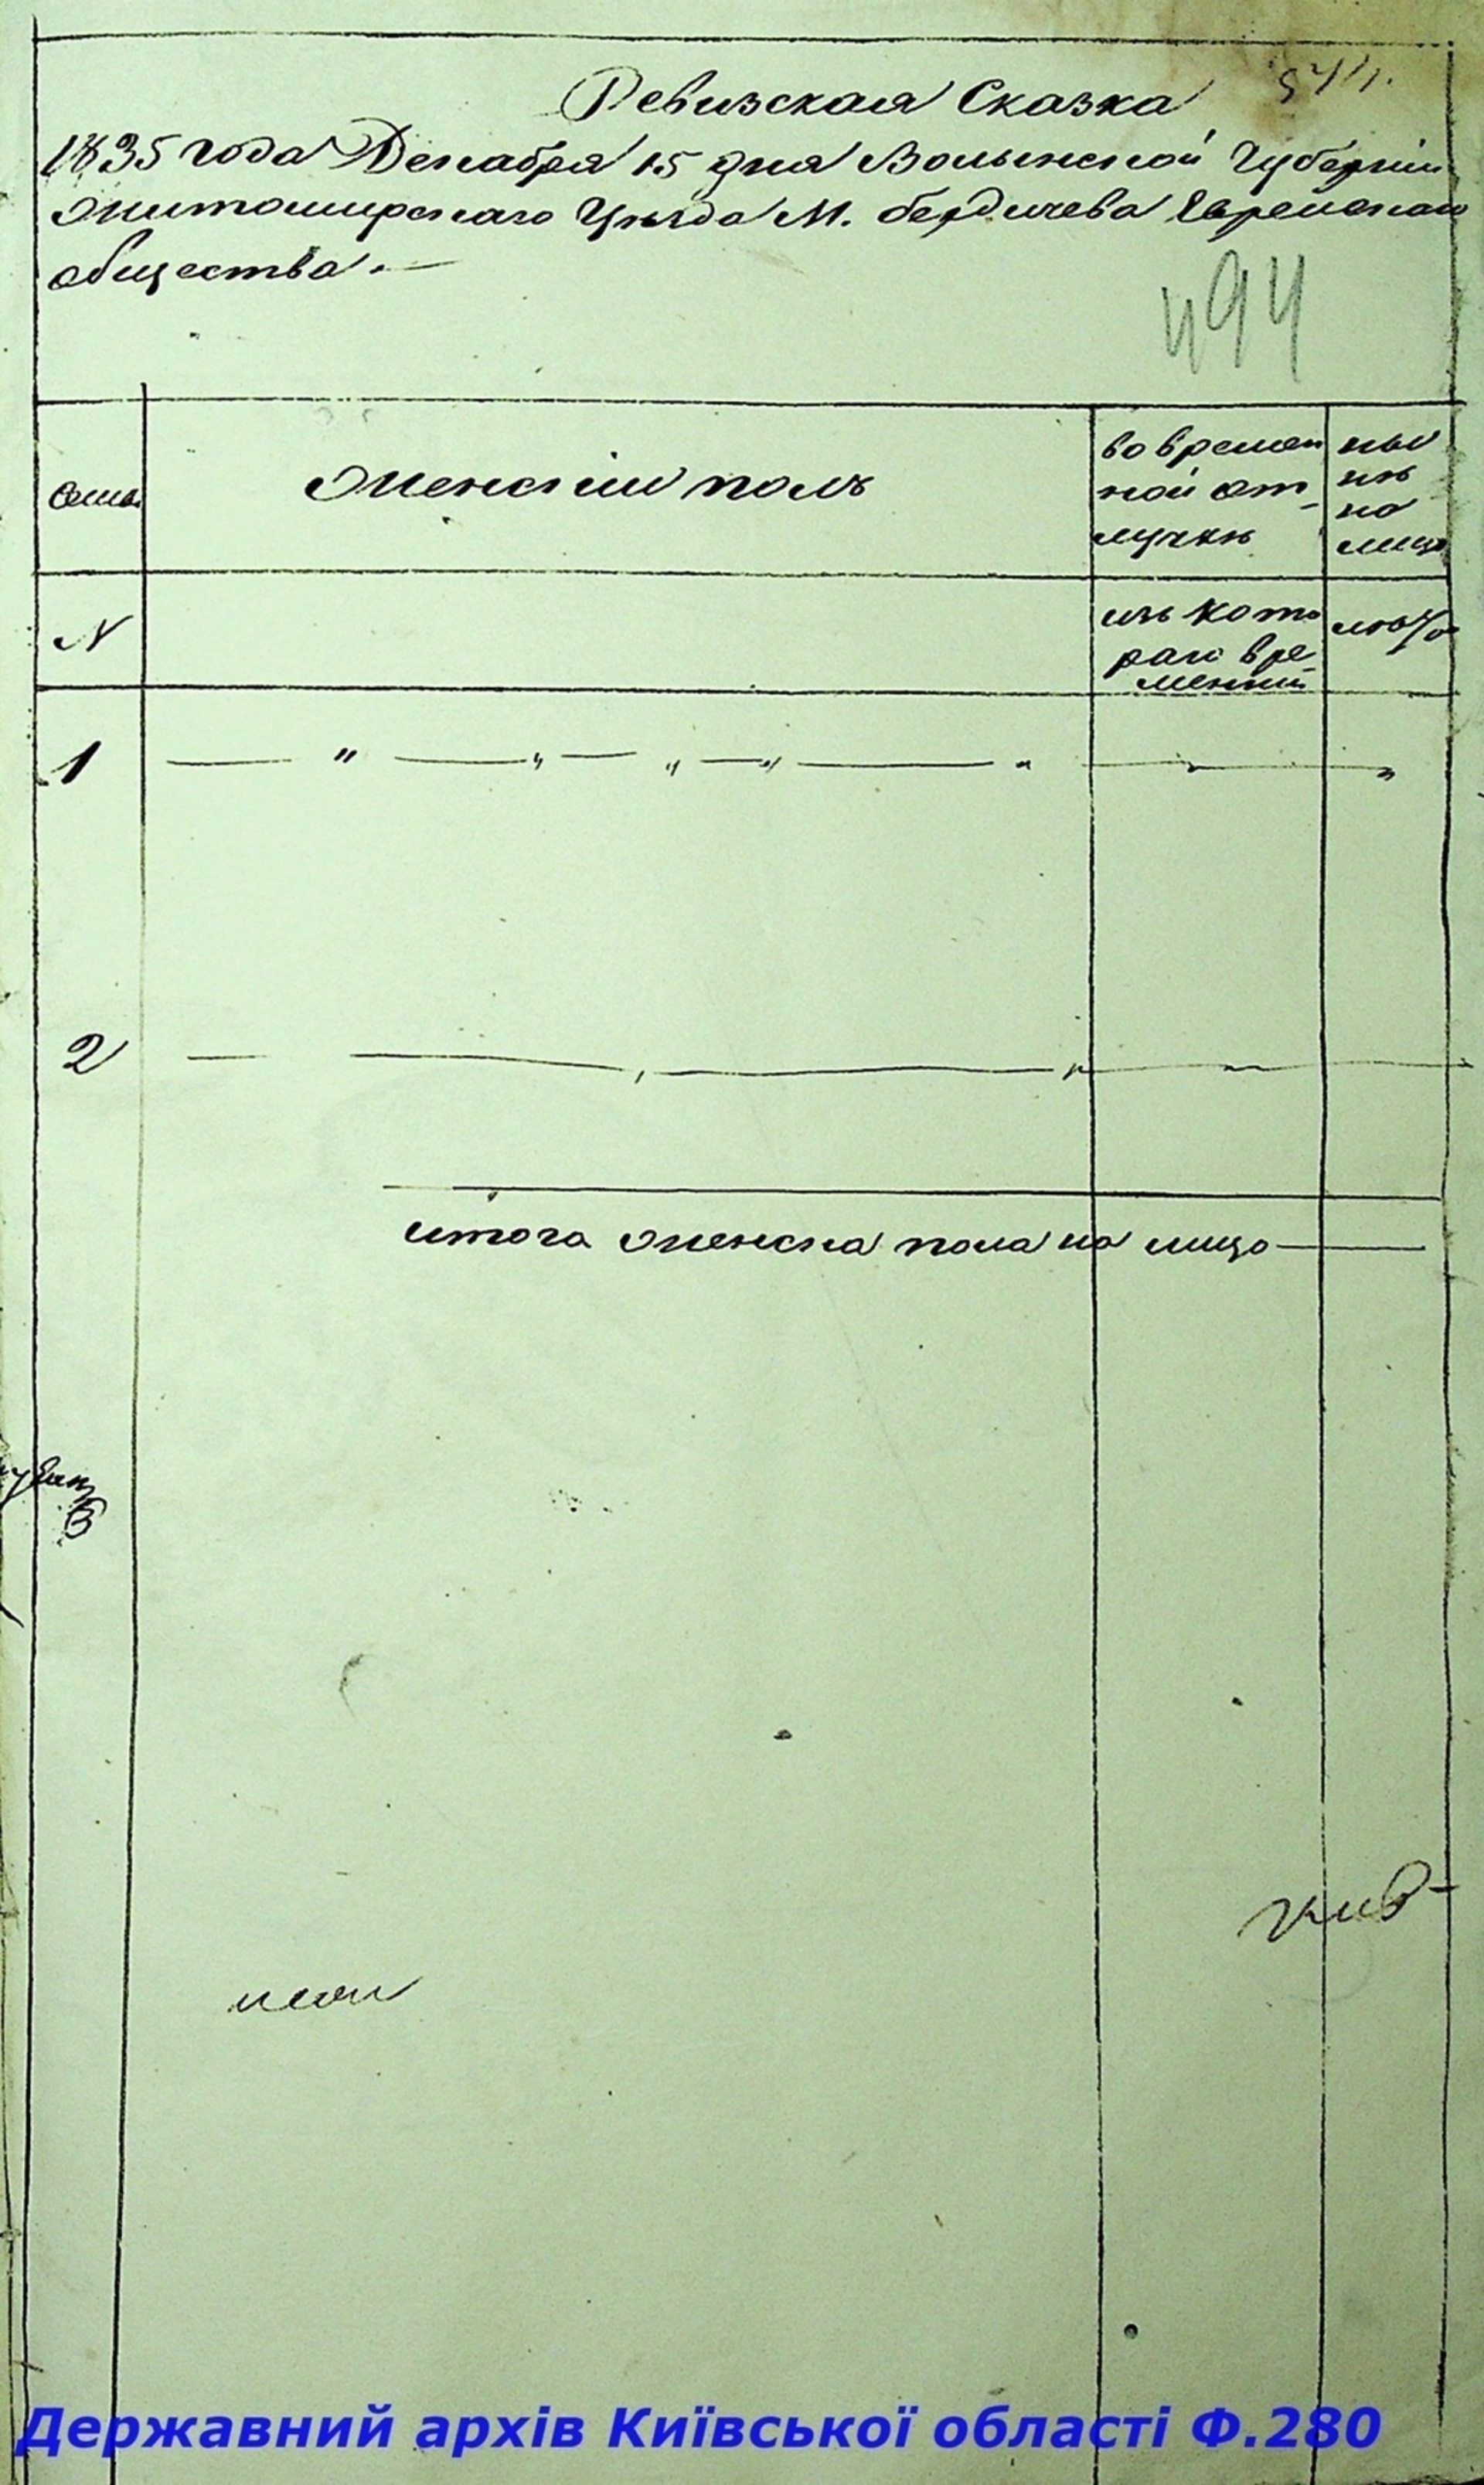 Ревизская Сказка
1835 года Декабря 15 дня Волынской Губернии
Житомирскаго Уезда М. бердичева Еврейскаго
общества.
494
Женский полъ
во времен
ной от-
лучкъ
ны
нъ
на
лицо
N
изъ кото
раго вре
мении
лъта
1
2
итого женска пола на лицо
Державний архів Київської області Ф.280